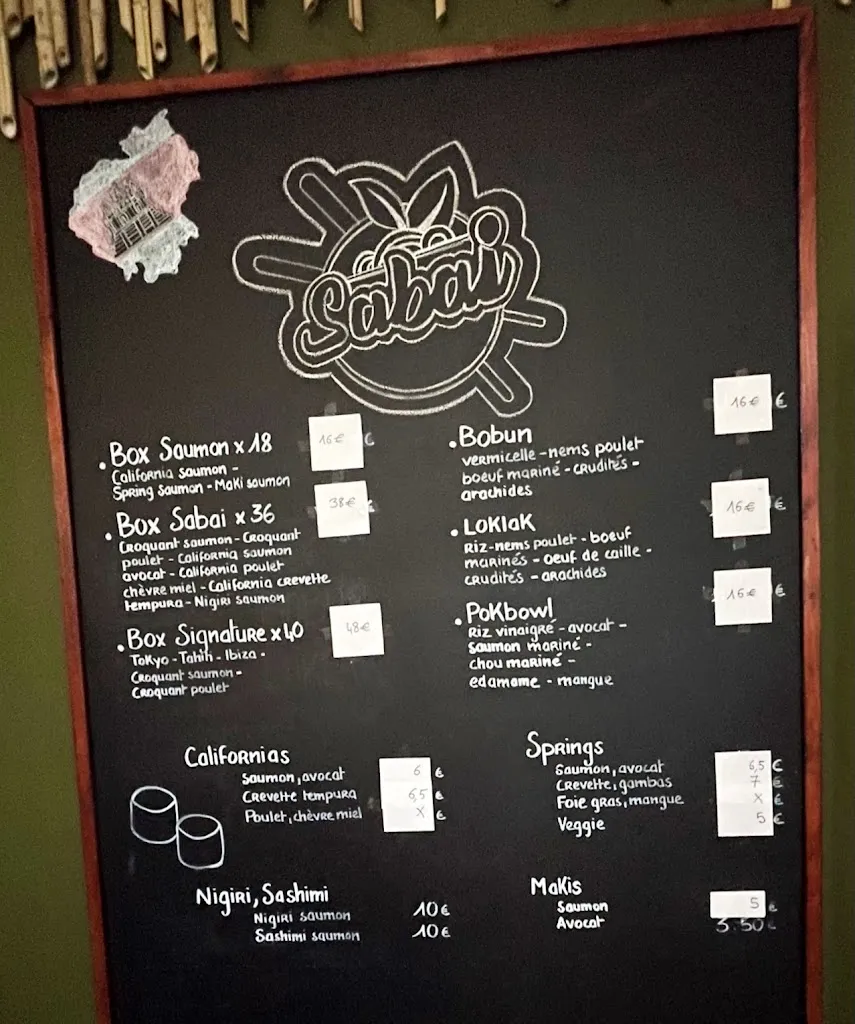 Sabai
Box Saumon x 18 16€ €
California saumon -
Spring saumon - Maki saumon
Box Sabai x 36 38€ €
Croquant saumon - Croquant
poulet - California saumon
avocat - California poulet
chèvre miel - California crevette
tempura - Nigiri saumon
Box Signature x 40 48€
Tokyo - Tahiti - Ibiza -
Croquant saumon -
Croquant poulet
Bobun 16€ €
vermicelle - nems poulet
boeuf mariné - crudités -
arachides
Loklak 16€ €
Riz - nems poulet - boeuf
marinés - oeuf de caille -
crudités - arachides
Pokbowl 16€ €
Riz vinaigré - avocat -
saumon mariné -
chou mariné -
edamame - mangue
Californias
Saumon, avocat 6 €
Crevette tempura 6,5 €
Poulet, chèvre miel X €
Springs
Saumon, avocat 6,5 €
Crevette, gambas 7 €
Foie gras, mangue X €
Veggie 5 €
Nigiri, Sashimi
Nigiri saumon 10€
Sashimi saumon 10€
Makis
Saumon 5 €
Avocat 3.50€